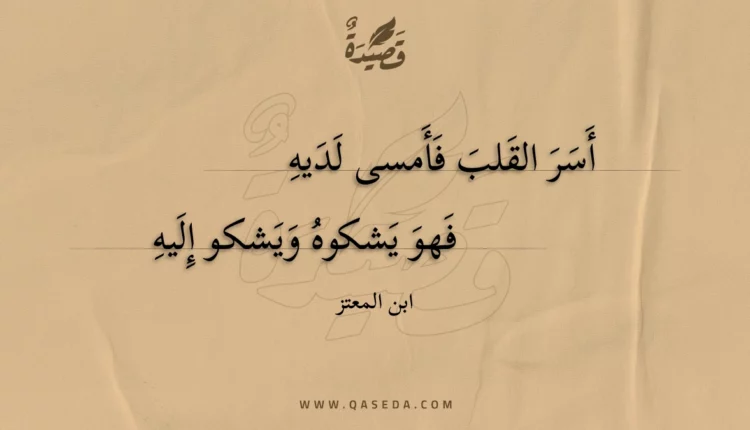 قَصِيْدَةٌ
أَسَرَ القَلبَ فَأَمسى لَدَيهِ
فَهوَ يَشكوهُ وَيَشكو إِلَيهِ
ابن المعتز
WWW.QASEDA.COM